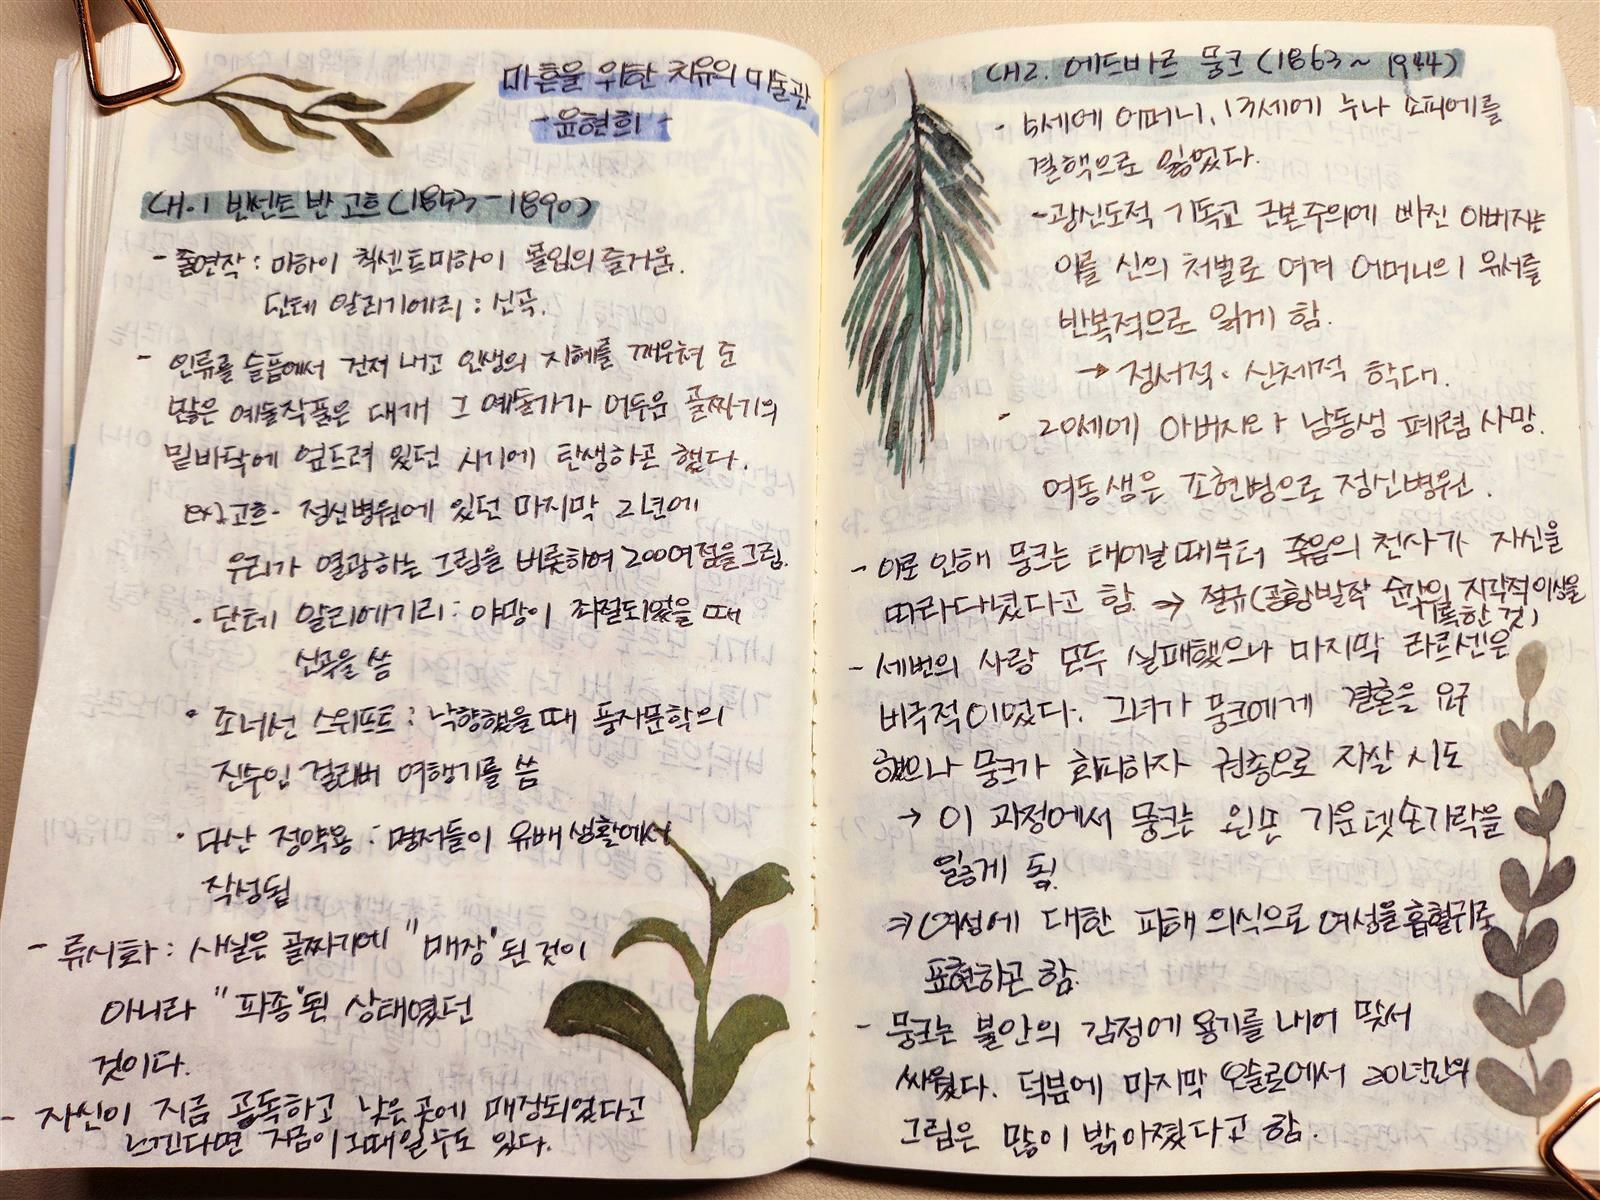 마흔을 위한 치유의 미술관
- 윤현희 -
CH.1 빈센트 반 고흐 (1853-1890)
- 출연작 : 미하이 칙센트미하이 몰입의 즐거움.
단테 알리기에리 : 신곡.
- 인류를 슬픔에서 건져 내고 인생의 지혜를 깨우쳐 준
많은 예술작품은 대개 그 예술가가 어두움 골짜기의
밑바닥에 엎드려 있던 시기에 탄생하곤 했다.
ex) 고흐 - 정신병원에 있던 마지막 2년에
우리가 열광하는 그림을 비롯하여 200여점을 그림.
· 단테 알리에기리 : 야망이 좌절되었을 때
신곡을 씀
· 조너선 스위프트 : 낙향했을 때 풍자문학의
진수인 걸리버 여행기를 씀
· 다산 정약용 : 명저들이 유배 생활에서
작성됨
- 류시화 : 사실은 골짜기에 "매장"된 것이
아니라 "파종"된 상태였던
것이다.
- 자신이 지금 고독하고 낮은 곳에 매장되었다고
느낀다면 지금이 그때일 수도 있다.
CH2. 에드바르 뭉크 (1863~1944)
- 5세에 어머니, 13세에 누나 소피에를
결핵으로 잃었다.
- 광신도적 기독교 근본주의에 빠진 아버지는
이를 신의 처벌로 여겨 어머니의 유서를
반복적으로 읽게 함.
→ 정서적 · 신체적 학대.
- 20세에 아버지와 남동생 폐렴 사망.
여동생은 조현병으로 정신병원.
- 이로 인해 뭉크는 태어날때부터 죽음의 천사가 자신을
따라다녔다고 함. => 절규 (공황발작 순간의 지각적 이상을
기록한 것)
- 세번의 사랑 모두 실패했으나 마지막 라르센은
비극적이었다. 그녀가 뭉크에게 결혼을 요구
했으나 뭉크가 회피하자 권총으로 자살 시도
→ 이 과정에서 뭉크는 왼쪽 가운뎃손가락을
잃게 됨.
여성에 대한 피해 의식으로 여성을 흡혈귀로
표현하곤 함.
- 뭉크는 불안의 감정에 용기를 내어 맞서
싸웠다. 덕분에 마지막 오슬로에서 20년간의
그림은 많이 밝아졌다고 함.